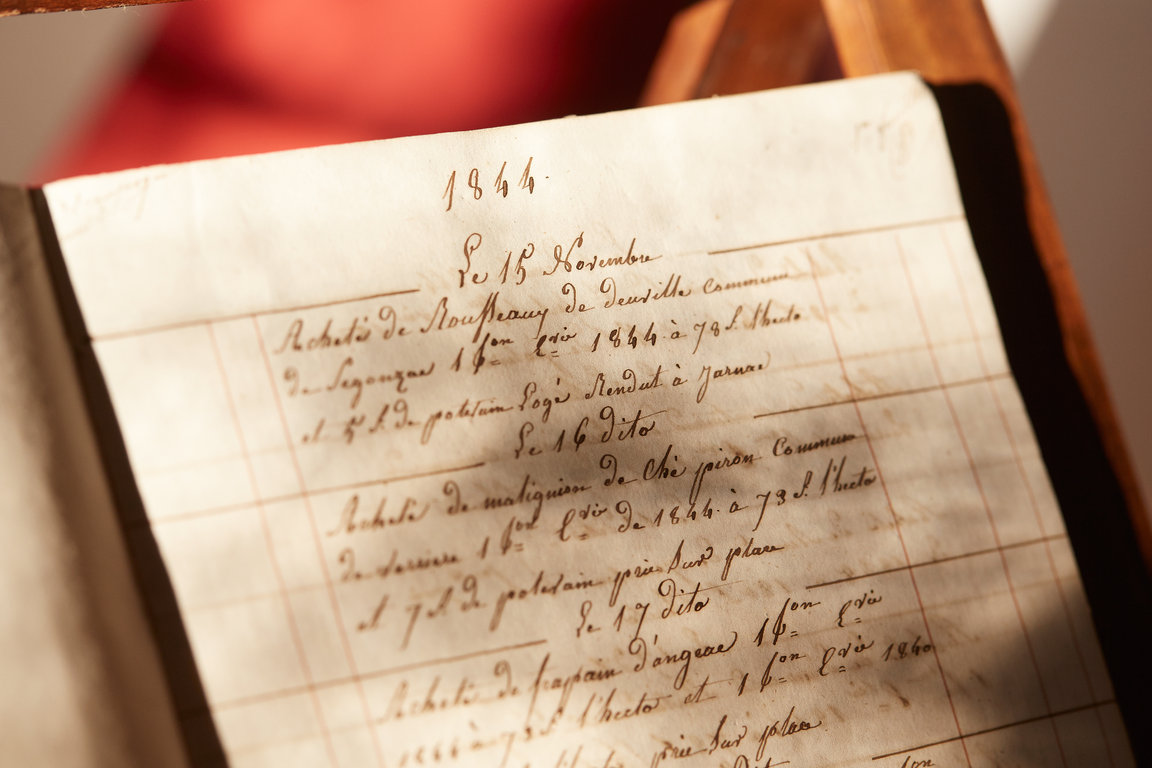 1844.
Le 15 Novembre
Acheté de Rousseaux de deuville commune
de Segonzac 1 fon Evie 1844 à 78 f. l'hecto
et 5 f. de potevin Logé Rendut à Jarnac
Le 16 dito
Acheté de matignion de Ché piron commune
de verriere 1 fon Evie De 1844 à 73 f. l'hecto
et 7 f. de potevain prie Sur place
Le 17 dito
Acheté de frapain d'angeac 1 fon Evie
1844 à 73 f. l'hecto et 1 fon Evie 1840
prie Sur place
dito
fon